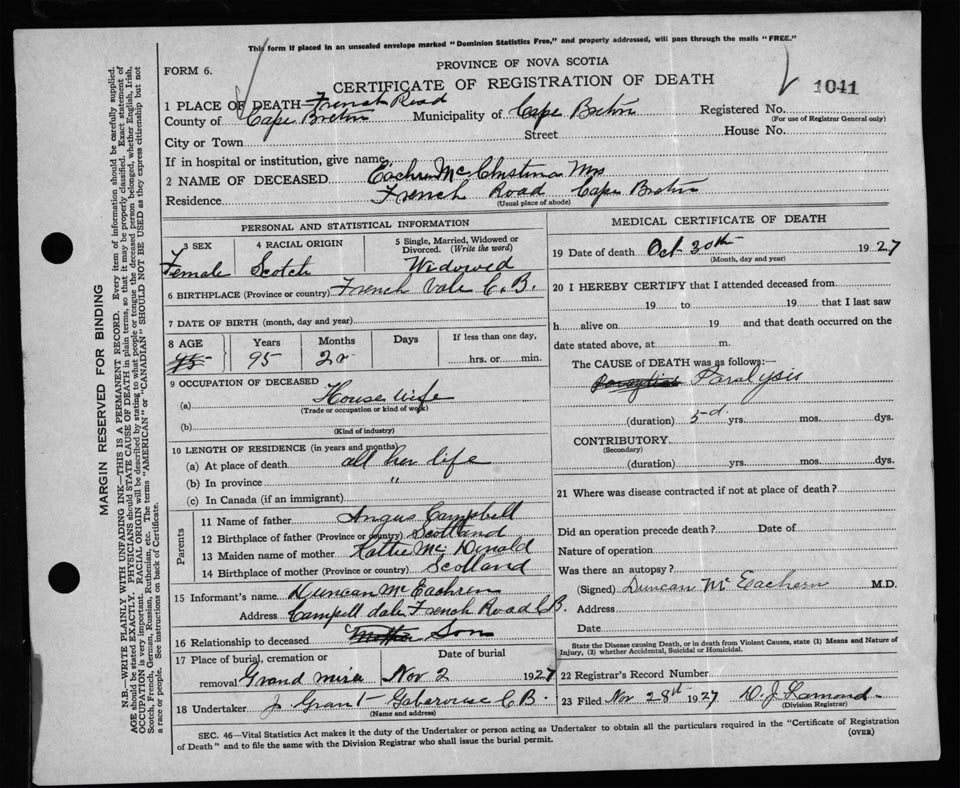 This form if placed in an unsealed envelope marked "Dominion Statistics Free," and properly addressed, will pass through the mails "FREE."
FORM 6.
PROVINCE OF NOVA SCOTIA
CERTIFICATE OF REGISTRATION OF DEATH
1041
1 PLACE OF DEATH—French Road
County of Cape Breton Municipality of Cape Breton Registered No.
(For use of Registrar General only)
City or Town Street House No.
If in hospital or institution, give name
2 NAME OF DECEASED Eachren Mc Christina Mrs
Residence French Road Cape Breton
(Usual place of abode)
PERSONAL AND STATISTICAL INFORMATION
3 SEX 4 RACIAL ORIGIN 5 Single, Married, Widowed or Divorced. (Write the word)
Female Scotch Widowed
6 BIRTHPLACE (Province or country) French Vale C.B.
7 DATE OF BIRTH (month, day and year)
8 AGE Years Months Days If less than one day,
95 hrs. or min.
9 OCCUPATION OF DECEASED
(a) House wife
(Trade or occupation or kind of work)
(b)
(Kind of industry)
10 LENGTH OF RESIDENCE (in years and months)
(a) At place of death all her life
(b) In province "
(c) In Canada (if an immigrant)
Parents
11 Name of father Angus Campbell
12 Birthplace of father (Province or country) Scotland
13 Maiden name of mother Kattie Mc Donald
14 Birthplace of mother (Province or country) Scotland
15 Informant's name Duncan McEachren
Address Campell dale French Road C.B.
16 Relationship to deceased Mother Son
17 Place of burial, cremation or removal Grand mira
Date of burial
Nov 2 1927
18 Undertaker J. Grant Gabarouse C B.
(Name and address)
MEDICAL CERTIFICATE OF DEATH
19 Date of death Oct 30th 1927
(Month, day and year)
20 I HEREBY CERTIFY that I attended deceased from
19 to 19 that I last saw
h alive on 19 and that death occurred on the
date stated above, at m.
The CAUSE of DEATH was as follows:—
Paralysis
(duration) 5-d. yrs. mos. dys.
CONTRIBUTORY
(Secondary)
(duration) yrs. mos. dys.
21 Where was disease contracted if not at place of death?
Did an operation precede death? Date of
Nature of operation
Was there an autopsy?
(Signed) Duncan Mc Eachern M.D.
Address
Date
State the Disease causing Death, or in death from Violent Causes, state (1) Means and Nature of
Injury, (2) whether Accidental, Suicidal or Homicidal.
22 Registrar's Record Number
23 Filed Nov 28th 1927 D. J. Lamond
(Division Registrar)
SEC. 46—Vital Statistics Act makes it the duty of the Undertaker or person acting as Undertaker to obtain all the particulars required in the "Certificate of Registration
of Death" and to file the same with the Division Registrar who shall issue the burial permit.
(OVER)
MARGIN RESERVED FOR BINDING
N.B.—WRITE PLAINLY WITH UNFADING INK—THIS IS A PERMANENT RECORD. Every item of information should be carefully supplied.
AGE should be stated EXACTLY. PHYSICIANS should STATE CAUSE OF DEATH in plain terms, so that it may be properly classified. Exact statement of
OCCUPATION is very important. RACIAL ORIGIN will be described by stating to what people or tongue the deceased person belonged, whether English, Irish,
Scotch, French, German, Russian, Ruthenian, etc. The terms "AMERICAN" or "CANADIAN" SHOULD NOT BE USED as they express citizenship but not
a race or people. See instructions on back of Certificate.